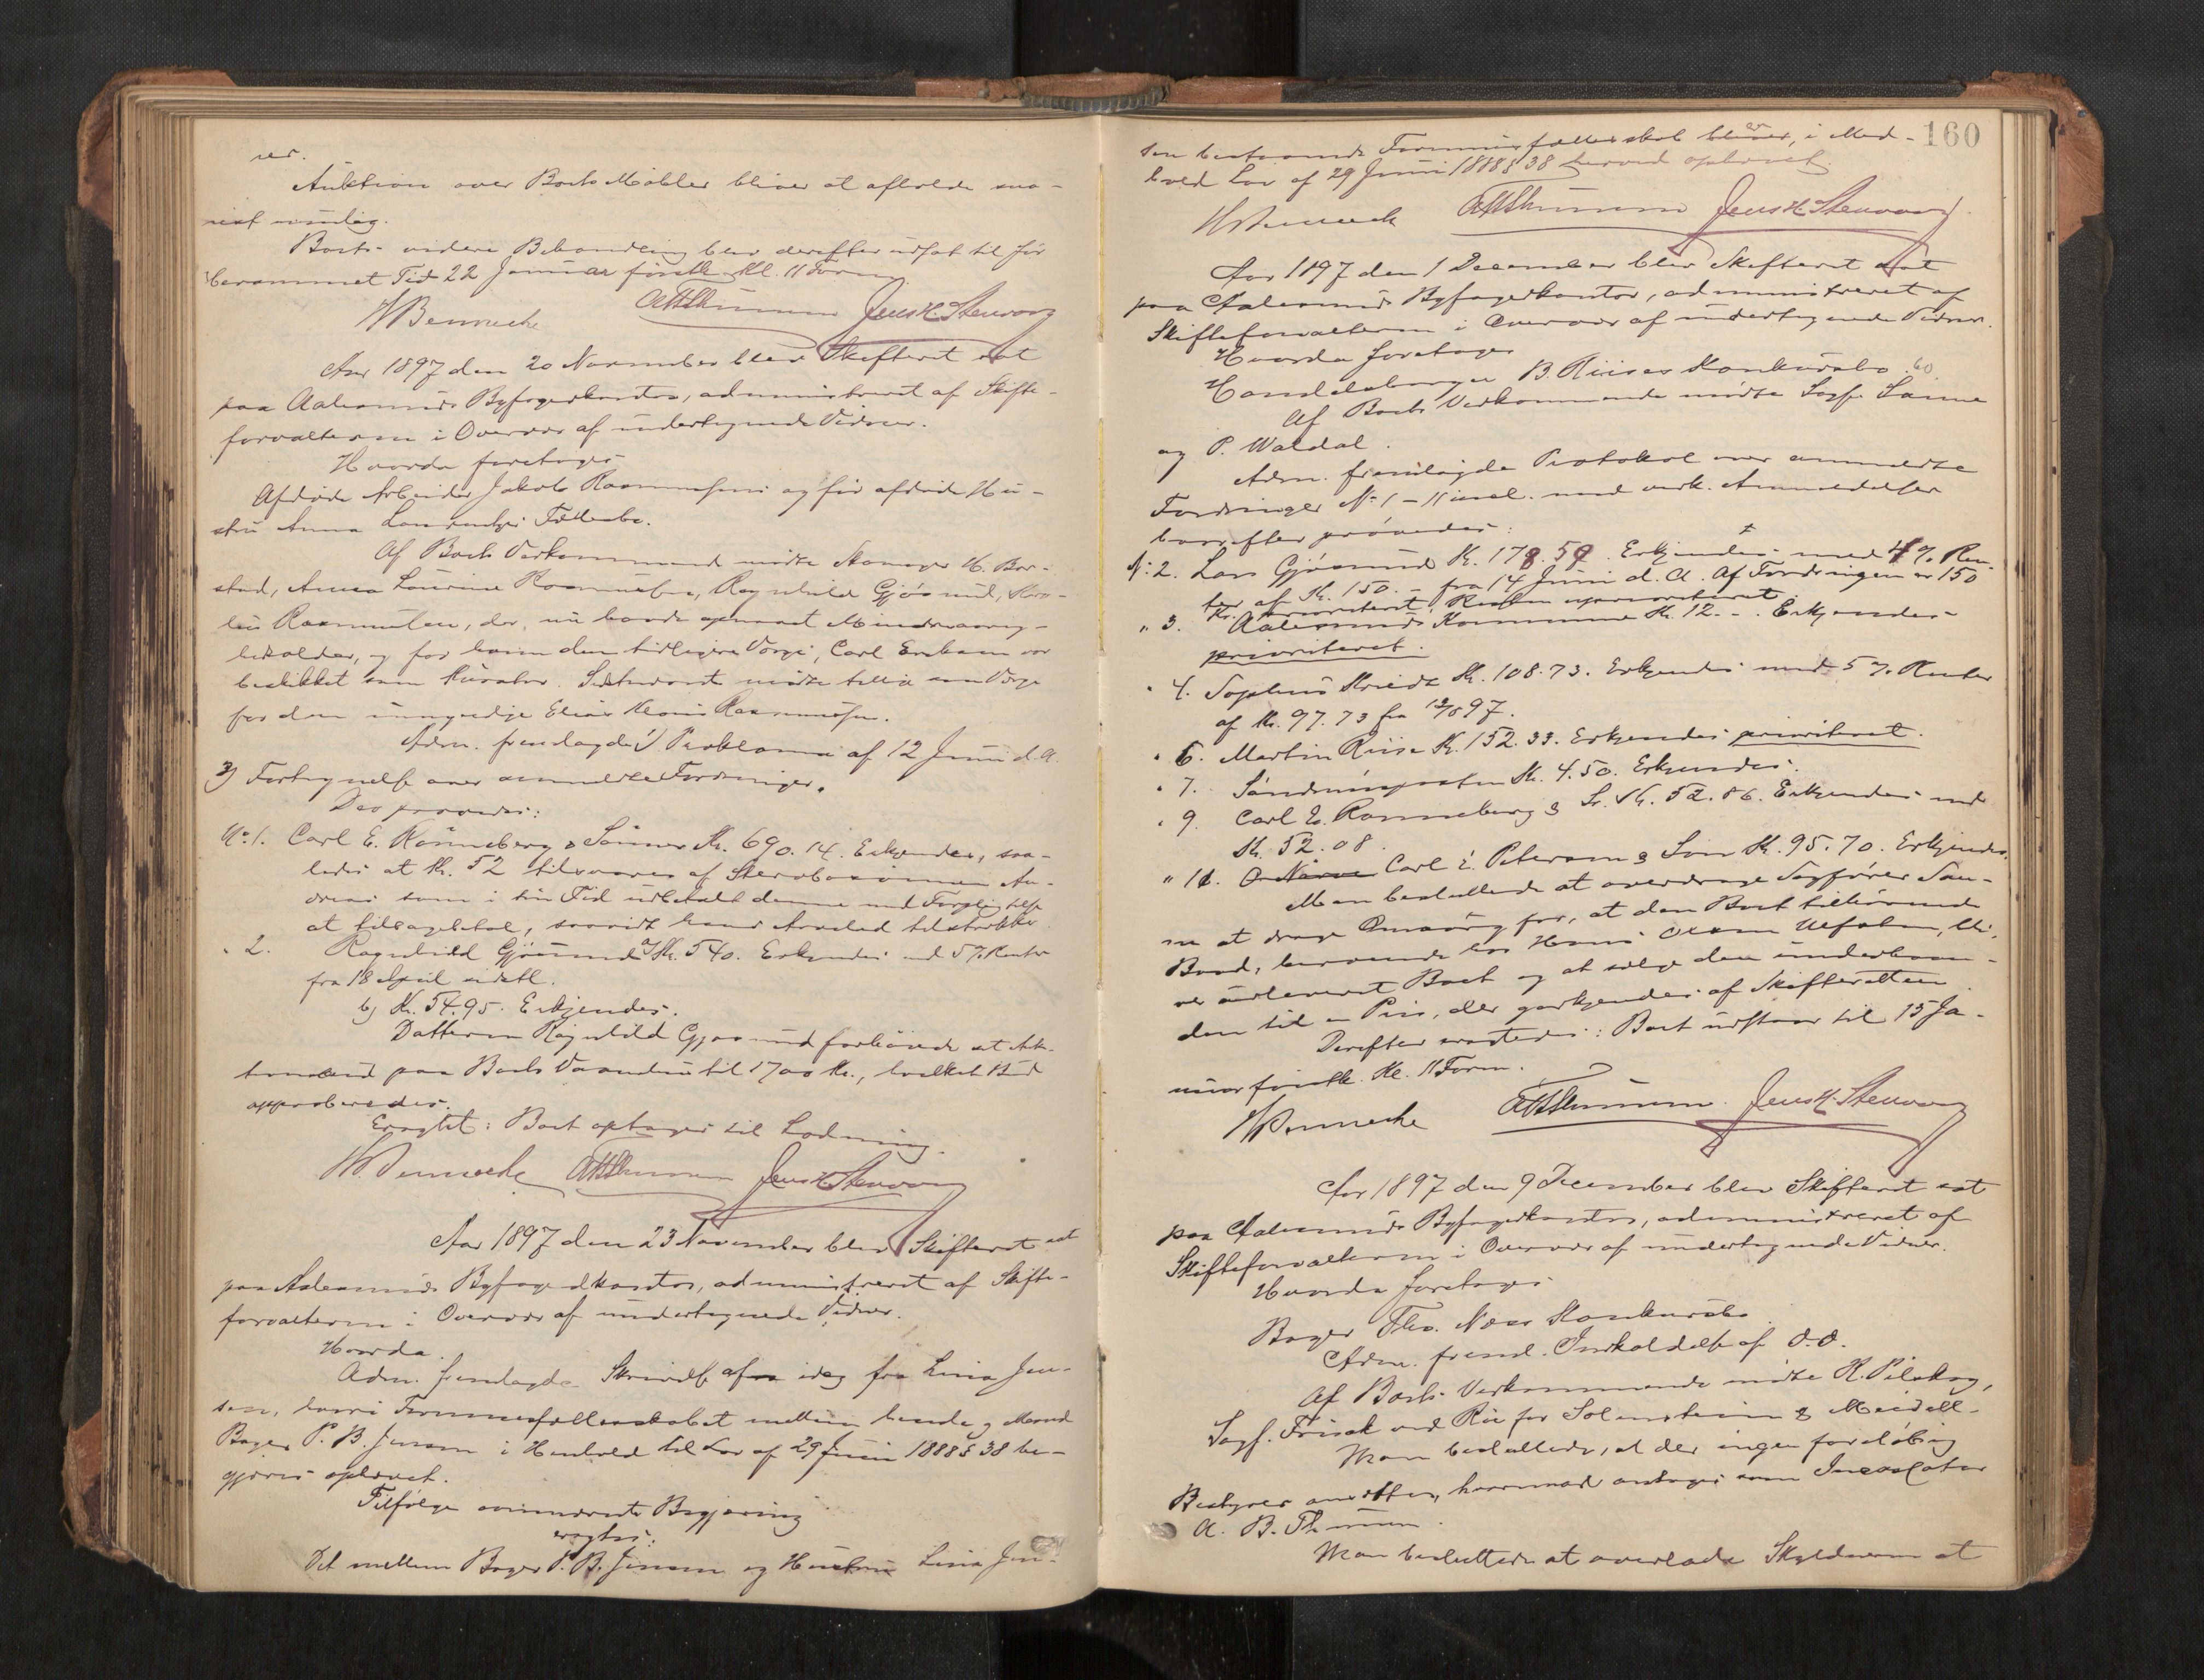 ver.
Auktion over Boets Møbler bliver at afholde sna-
rest mulig.
Boets videre Behandling blev derefter udsat til før
berammet Tid 22 Januar førstk. Kl. 11 Form.
H Bennecke A B Thunem Jens K. Stenvaag
Aar 1897 den 20 November blev Skifteret sat
paa Aalesunds Byfogedkontor, administreret af Skifte-
forvalteren i Overvær af undertegnede Vidner.
Hvorda foretoges
Afdøde Arbeider Jakob Rasmussens og før afdøde Hu-
stru Anna Fællesbo.
Af Boets Vedkommende mødte H. Bor-
stad, Anna Laurine Rasmussen, Ragnhild Gjøsund,
Rasmussen, der nu havde opnaaet Mindreaarig-
hedsalder, og for hvem den tidligere Værge, Carl var
beskikket som Kurator. Sidstnævnte mødte tillige som Værge
for den umyndige Elias Rasmussen.
Adm. fremlagde 1) Proklama af 12 Juni d. A.
2) Fortegnelse over anmeldte Fordringer.
Der prøvedes:
No. 1. Carl E. Rønneberg & Sønner Kr. 690.14. Erkjendes, saa-
ledes at Kr. 52 tilsvares af Stervbosønnen An-
dreas som i sin Tid udbetalt denne med Forpligtelse
at tilbagebetale, saavidt hans Arvelod tilstrækker.
" 2. Ragnhild Gjøsund a) Kr. 540. Erkjendes med 5 % Renter
fra 18 April sidstl.
b) Kr. 54.95. Erkjendes.
Datteren Ragnhild Gjøsund forhøiede sit Auk-
tionsbud paa Boets Vaaningshus til 1700 Kr., hvilket Bud
approberedes.
Eragtet: Boet optages til Lodning.
H. Bennecke A B Thunem Jens K. Stenvaag
Aar 1897 den 23 November blev Skifteret sat
paa Aalesunds Byfogedkontor, administreret af Skifte-
forvalteren i Overvær af undertegnede Vidner.
Hvorda.
Adm. fremlagde Skrivelse af idag fra Lina Jen-
sen, hvori Formuesfællesskabet mellem hende og Mand
Bager P. B. Jensen i Henhold til Lov af 29 Juni 1888 § 38 be-
gjæres ophævet.
Tilfølge ovennævnte Begjæring
eragtes:
Det mellem Bager P. B. Jensen og Hustru Lina Jen-
160
sen bestaaende Formuesfællesskab bliver, i Med-
hold Lov af 29 Juni 1888 § 38 herved ophævet.
H Bennecke A B Thunem Jens K. Stenvaag
Aar 1897 den 1 December blev Skifteret sat
paa Aalesunds Byfogedkontor, administreret af
Skifteforvalteren i Overvær af undertegnede Vidner.
Hvorda foretoges
Handelsborger B. Riises Konkursbo. 60
Af Boets Vedkommende mødte Sagf. Sanne
og P. Waldal.
Adm. fremlagde Protokol over anmeldte
Fordringer No. 1 – 11 incl. med vedk. Anmeldelser
hvorefter prøvedes:
No. 2. Lars Gjøsund Kr. 178.59. Erkjendes med 4 % Ren-
ter af Kr. 150.– fra 14 Juni d. A. Af Fordringen er 150
Kr. prioriteret, Resten uprioriteret.
" 3. Aalesunds Kommune Kr. 12.–. Erkjendes
prioriteret.
" 4. Sophus Kr. 108.73. Erkjendes med 5 % Renter
af Kr. 97.73 fra 12/8 97.
" 6. Martin Riise Kr. 152.33. Erkjendes prioriteret.
" 7. Søndmørsposten Kr. 4.50. Erkjendes.
" 9. Carl E. Rønneberg & S. Kr. 52.86. Erkjendes med
Kr. 52.08.
" 11. Carl E. Petersen & Søn Kr. 95.70. Erkjendes.
Man besluttede at overdrage Sagfører San-
ne at drage Omsorg for, at den Boet tilhørende
Baad, beroende hos Hans Olsen Ulfsten, bli-
ver udleveret Boet og at sælge den underhaan-
den til en Pris, der godkjendes af Skifteretten.
Derefter eragtedes: Boet udstaar til 15 Ja-
nuar førstk. Kl. 11 Form.
H Bennecke A B Thunem. Jens K. Stenvaag
Aar 1897 den 9 December blev Skifteret sat
paa Aalesunds Byfogedkontor, administreret af
Skifteforvalteren i Overvær af undertegnede Vidner.
Hvorda foretoges
Bager Theo. Næss Konkursbo.
Adm. freml. Indkaldelse af d.d.
Af Boets Vedkommende mødte K. Pilskog,
Sagf. Frisak ved Rie for Solenstein & Meidell.
Man besluttede, at der ingen foreløbig
Bestyrer ansættes, hvorimod antoges som Incassator
A. B. Thunem.
Man besluttede at overlade Skyldneren at